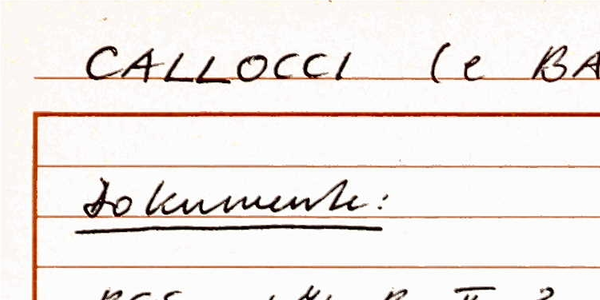 CALLOCCI (e BA
Dokumente: